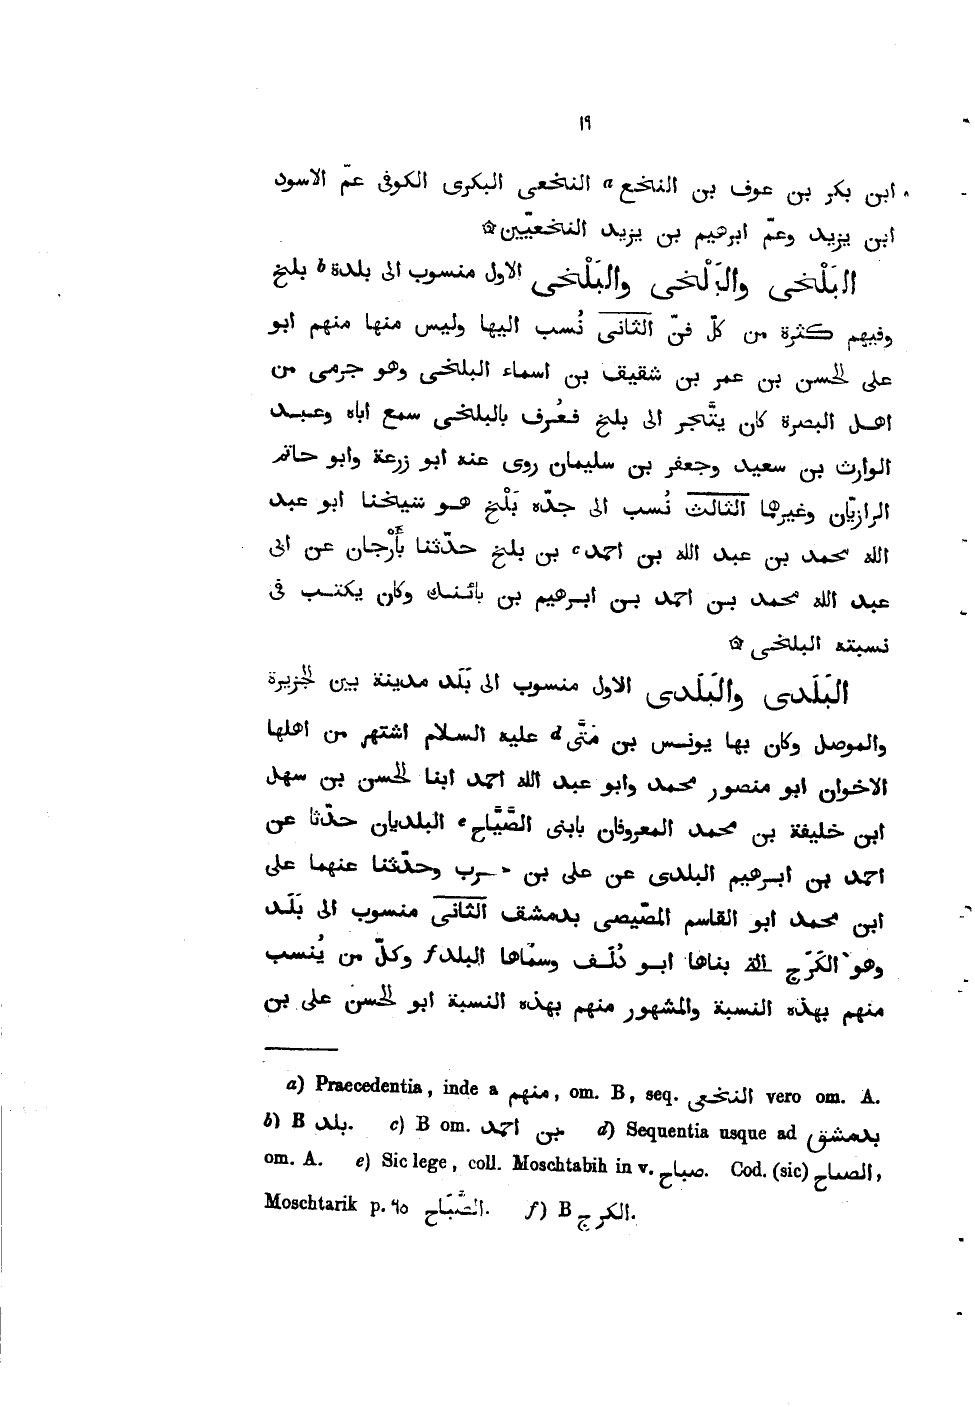 ١٩
ابن بكر بن عوف بن النخع a النخعى البكرى الكوفى عمّ الاسود
ابن يزيد وعمّ ابرهيم بن يزيد النخعيّين ۞
البَلْخى والبَلْخى والبَلْخى الاول منسوب الى بلدة b بلخ
وفيهم كثرة من كلّ فنّ الثانى نُسب اليها وليس منها منهم ابو
على الحسن بن عمر بن شقيق بن اسماء البلخى وهو جرمى من
اهل البصرة كان يتَّجر الى بلخ فعُرف بالبلخى سمع اباه وعبد
الوارث بن سعيد وجعفر بن سليمان روى عنه ابو زرعة وابو حاتم
الرازيّان وغيرهما الثالث نُسب الى جدّه بَلْخ هو شيخنا ابو عبد
الله محمد بن عبد الله بن احمد c بن بلخ حدّثنا بأَرْجان عن ابى
عبد الله محمد بن احمد بن ابرهيم بن بانك وكان يكتب فى
نسبته البلخى ۞
البَلَدى والبَلَدى الاول منسوب الى بَلَد مدينة بين الجزيرة
والموصل وكان بها يونس بن مَتَّى d عليه السلام اشتهر من اهلها
الاخوان ابو منصور محمد وابو عبد الله احمد ابنا الحسن بن سهل
ابن خليفة بن محمد المعروفان بابنى الصَّيَّاح e البلديان حدّثا عن
احمد بن ابرهيم البلدى عن على بن حرب وحدّثنا عنهما على
ابن محمد ابو القاسم المصّيصى بدمشق الثانى منسوب الى بَلَد
وهو الكَرَج التى بناها ابو دُلَف وسمّاها البلد f وكلّ من يُنسب
منهم بهذه النسبة والمشهور منهم بهذه النسبة ابو الحسن على بن
a) Praecedentia, inde a منهم, om. B, seq. النخعى vero om. A.
b) B بلد. c) B om. بن احمد. d) Sequentia usque ad بدمشق
om. A. e) Sic lege, coll. Moschtabih in v. صباح. Cod. (sic) الصباح,
Moschtarik p. ٦٥ الصَّبَّاح. f) B الكرج.